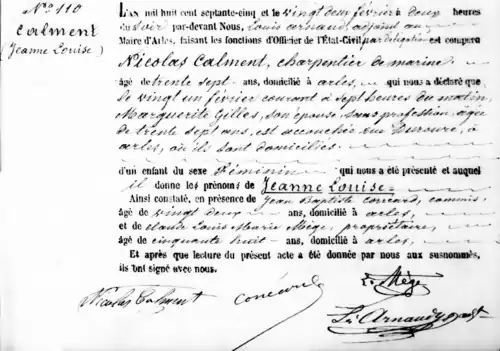 No 110
Calment
(Jeanne Louise)
L'AN mil huit cent septante-cinq et le vingt deux février à deux heures
du soir par-devant Nous, Louis arnaud, adjoint au
Maire d'Arles, faisant les fonctions d'Officier de l'État-Civil, par délégation est comparu
Nicolas Calment, charpentier de marine
âgé de trente sept ans, domicilié à arles, qui nous a déclaré que
le vingt un février courant à sept heures du matin,
Marguerite Gilles, son épouse, sans profession, agée
de trente sept ans, est accouchée rue à
arles, où ils sont domiciliés
d'un enfant du sexe féminin qui nous a été présenté et auquel
il donne les prénoms de Jeanne Louise
Ainsi constaté, en présence de Jean Baptiste commis,
âgé de vingt deux ans, domicilié à arles,
et de claude Louis Marie Mège, propriétaire,
âgé de cinquante huit ans, domicilié à arles,
Et après que lecture du présent acte a été donnée par nous aux susnommés,
ils ont signé avec nous.
Nicolas Calment
L. Mège
Ls Arnaud adjt